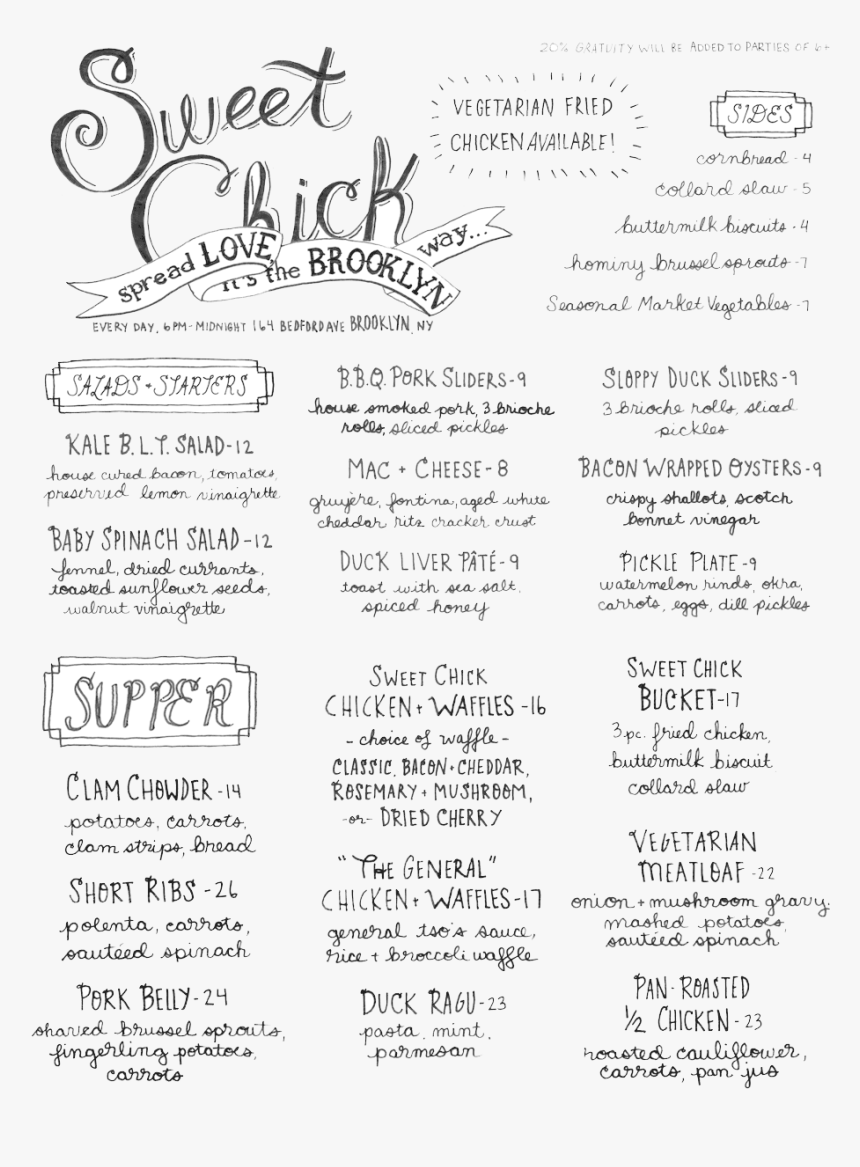 20% GRATUITY WILL BE ADDED TO PARTIES OF 6+
Sweet
Chick
spread LOVE,
it's the BROOKLYN
way...
EVERY DAY, 6PM-MIDNIGHT 164 BEDFORD AVE BROOKLYN, NY
VEGETARIAN FRIED
CHICKEN AVAILABLE!
SIDES
cornbread - 4
collard slaw - 5
buttermilk biscuits - 4
hominy brussel sprouts - 7
Seasonal Market Vegetables - 7
SALADS + STARTERS
KALE B.L.T. SALAD - 12
house cured bacon, tomatoes,
preserved lemon vinaigrette
BABY SPINACH SALAD - 12
fennel, dried currants,
toasted sunflower seeds,
walnut vinaigrette
B.B.Q. PORK SLIDERS - 9
house smoked pork, 3 brioche
rolls, sliced pickles
MAC + CHEESE - 8
gruyère, fontina, aged white
cheddar ritz cracker crust
DUCK LIVER PÂTÉ - 9
toast with sea salt,
spiced honey
SLOPPY DUCK SLIDERS - 9
3 brioche rolls, sliced
pickles
BACON WRAPPED OYSTERS - 9
crispy shallots, scotch
bonnet vinegar
PICKLE PLATE - 9
watermelon rinds, okra,
carrots, eggs, dill pickles
SUPPER
CLAM CHOWDER - 14
potatoes, carrots,
clam strips, bread
SHORT RIBS - 26
polenta, carrots,
sautéed spinach
PORK BELLY - 24
shaved brussel sprouts,
fingerling potatoes,
carrots
SWEET CHICK
CHICKEN + WAFFLES - 16
- choice of waffle -
CLASSIC, BACON + CHEDDAR,
ROSEMARY + MUSHROOM,
-or- DRIED CHERRY
"THE GENERAL"
CHICKEN + WAFFLES - 17
general tso's sauce,
rice + broccoli waffle
DUCK RAGU - 23
pasta, mint,
parmesan
SWEET CHICK
BUCKET - 17
3 pc. fried chicken,
buttermilk biscuit
collard slaw
VEGETARIAN
MEATLOAF - 22
onion + mushroom gravy,
mashed potatoes,
sautéed spinach
PAN-ROASTED
1/2 CHICKEN - 23
roasted cauliflower,
carrots, pan jus